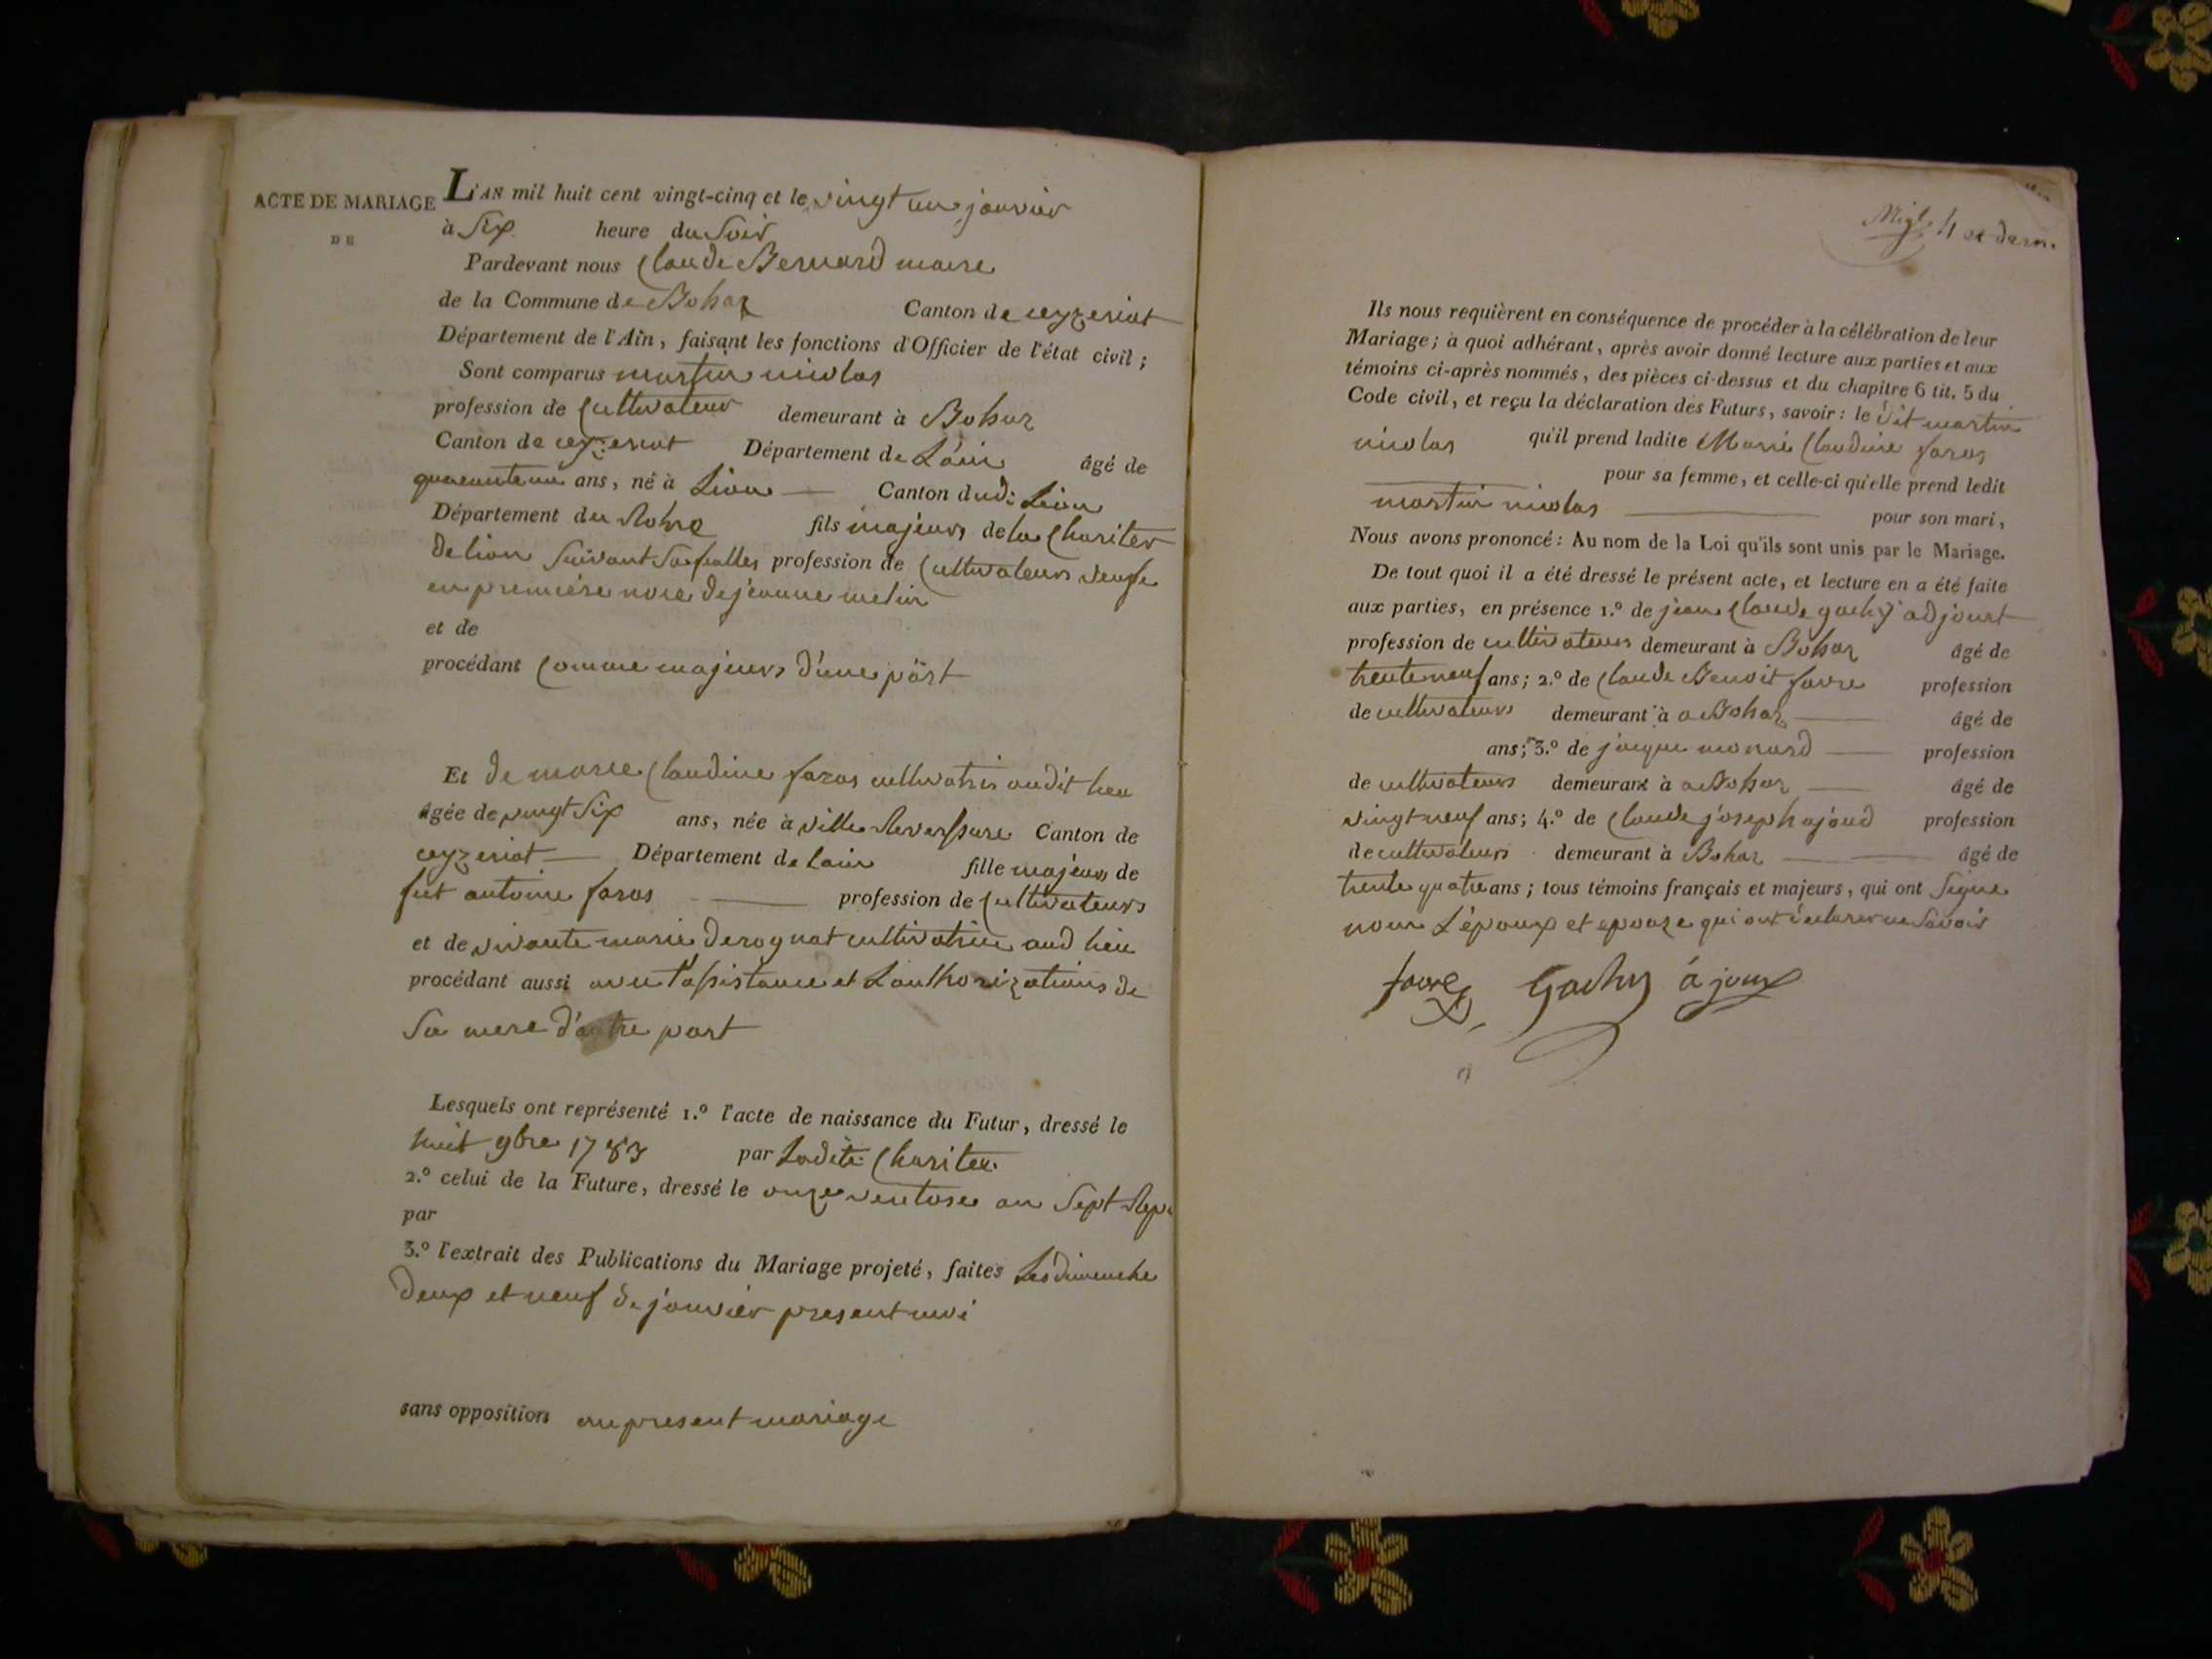 ACTE DE MARIAGE
DE
L'AN mil huit cent vingt-cinq et le vingt un janvier
à Six heure du Soir
Pardevant nous Claude Bernard maire
de la Commune de Bohaz Canton de ceyzeriat
Département de l'Ain, faisant les fonctions d'Officier de l'état civil;
Sont comparus martin nicolas
profession de Cultivateur demeurant à Bohaz
Canton de ceyzeriat Département de L'ain âgé de
quarante un ans, né à Lion Canton dudi Lion
Département du Rohne fils majeurs de la Chariter
de lion Suivant profession de Cultivateurs veufe
en premiére noce de jeanne metin
et de
procédant Comme majeurs d'une part
Et de marie Claudine faros cultivatris audit lieu
âgée de vingt Six ans, née à ville Reversure Canton de
ceyzeriat Département de lain fille majeurs de
fut antoine faros profession de Cultivateurs
et de vivante marie derognat cultivatrice aud lieu
procédant aussi avec l'assistance et Lauthorizations de
Sa mere d'autre part
Lesquels ont représenté 1.º l'acte de naissance du Futur, dressé le
huit 9bre 1783 par Ladite Charitee
2.º celui de la Future, dressé le onze ventose an Sept Repu
par
3.º l'extrait des Publications du Mariage projeté, faites Les dimenche
deux et neuf de janvier present moi
sans opposition au present mariage
4 et dern.
Ils nous requièrent en conséquence de procéder à la célébration de leur
Mariage; à quoi adhérant, après avoir donné lecture aux parties et aux
témoins ci-après nommés, des pièces ci-dessus et du chapitre 6 tit. 5 du
Code civil, et reçu la déclaration des Futurs, savoir: le dit martin
nicolas qu'il prend ladite Marie Claudine faros
pour sa femme, et celle-ci qu'elle prend ledit
martin nicolas pour son mari,
Nous avons prononcé: Au nom de la Loi qu'ils sont unis par le Mariage.
De tout quoi il a été dressé le présent acte, et lecture en a été faite
aux parties, en présence 1.º de jean Claude gachy adjouit
profession de cultivateurs demeurant à Bohaz âgé de
trente neuf ans; 2.º de Claude Benoit favre profession
de cultivateurs demeurant à a Bohaz âgé de
ans; 3.º de jacque monard profession
de cultivateurs demeurant à a Bohaz âgé de
vingt neuf ans; 4.º de Claude joseph ajoud profession
de cultivateurs demeurant à Bohaz âgé de
trente quatre ans; tous témoins français et majeurs, qui ont Signe
non L'époux et epouze qui ont declarer ne Savoir
favre Gachy ajoux